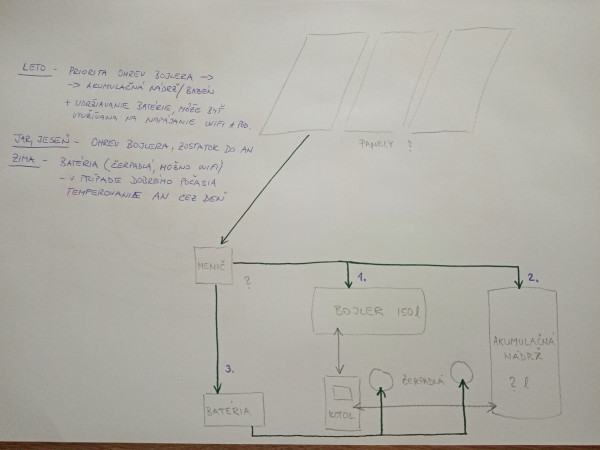 LETO - PRIORITA OHREV BOJLERA →
→ AKUMULAČNÁ NÁDRŽ/BAZÉN
+ UDRŽIAVANIE BATÉRIE, MÔŽE BYŤ
VYUŽÍVANÁ NA NAPÁJANIE WIFI A POD.
JAR, JESEŇ - OHREV BOJLERA, ZOSTATOK DO AN
ZIMA - BATÉRIA (ČERPADLÁ, MOŽNO WIFI)
- V PRÍPADE DOBRÉHO POČASIA
TEMPEROVANIE AN CEZ DEŇ
PANELY ?
MENIČ
?
1.
2.
BOJLER 150 l
AKUMULAČNÁ
NÁDRŽ
? l
3.
ČERPADLÁ
KOTOL
BATÉRIA